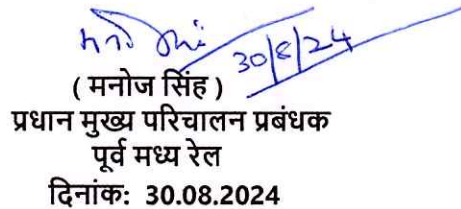 30/8/24
( मनोज सिंह )
प्रधान मुख्य परिचालन प्रबंधक
पूर्व मध्य रेल
दिनांक: 30.08.2024